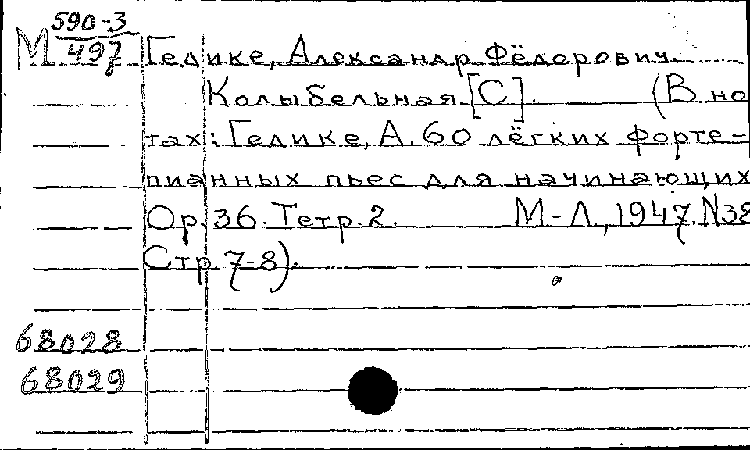 590-3
М 497 Гедике, Александр Фёдорович.
Колыбельная [С] (В но
тах: Гедике, А. 60 лёгких форте-
пианных пьес для начинающих
Ор. 36. Тетр. 2. М-Л, 1947. N38
Стр 7-8).
68028
68029